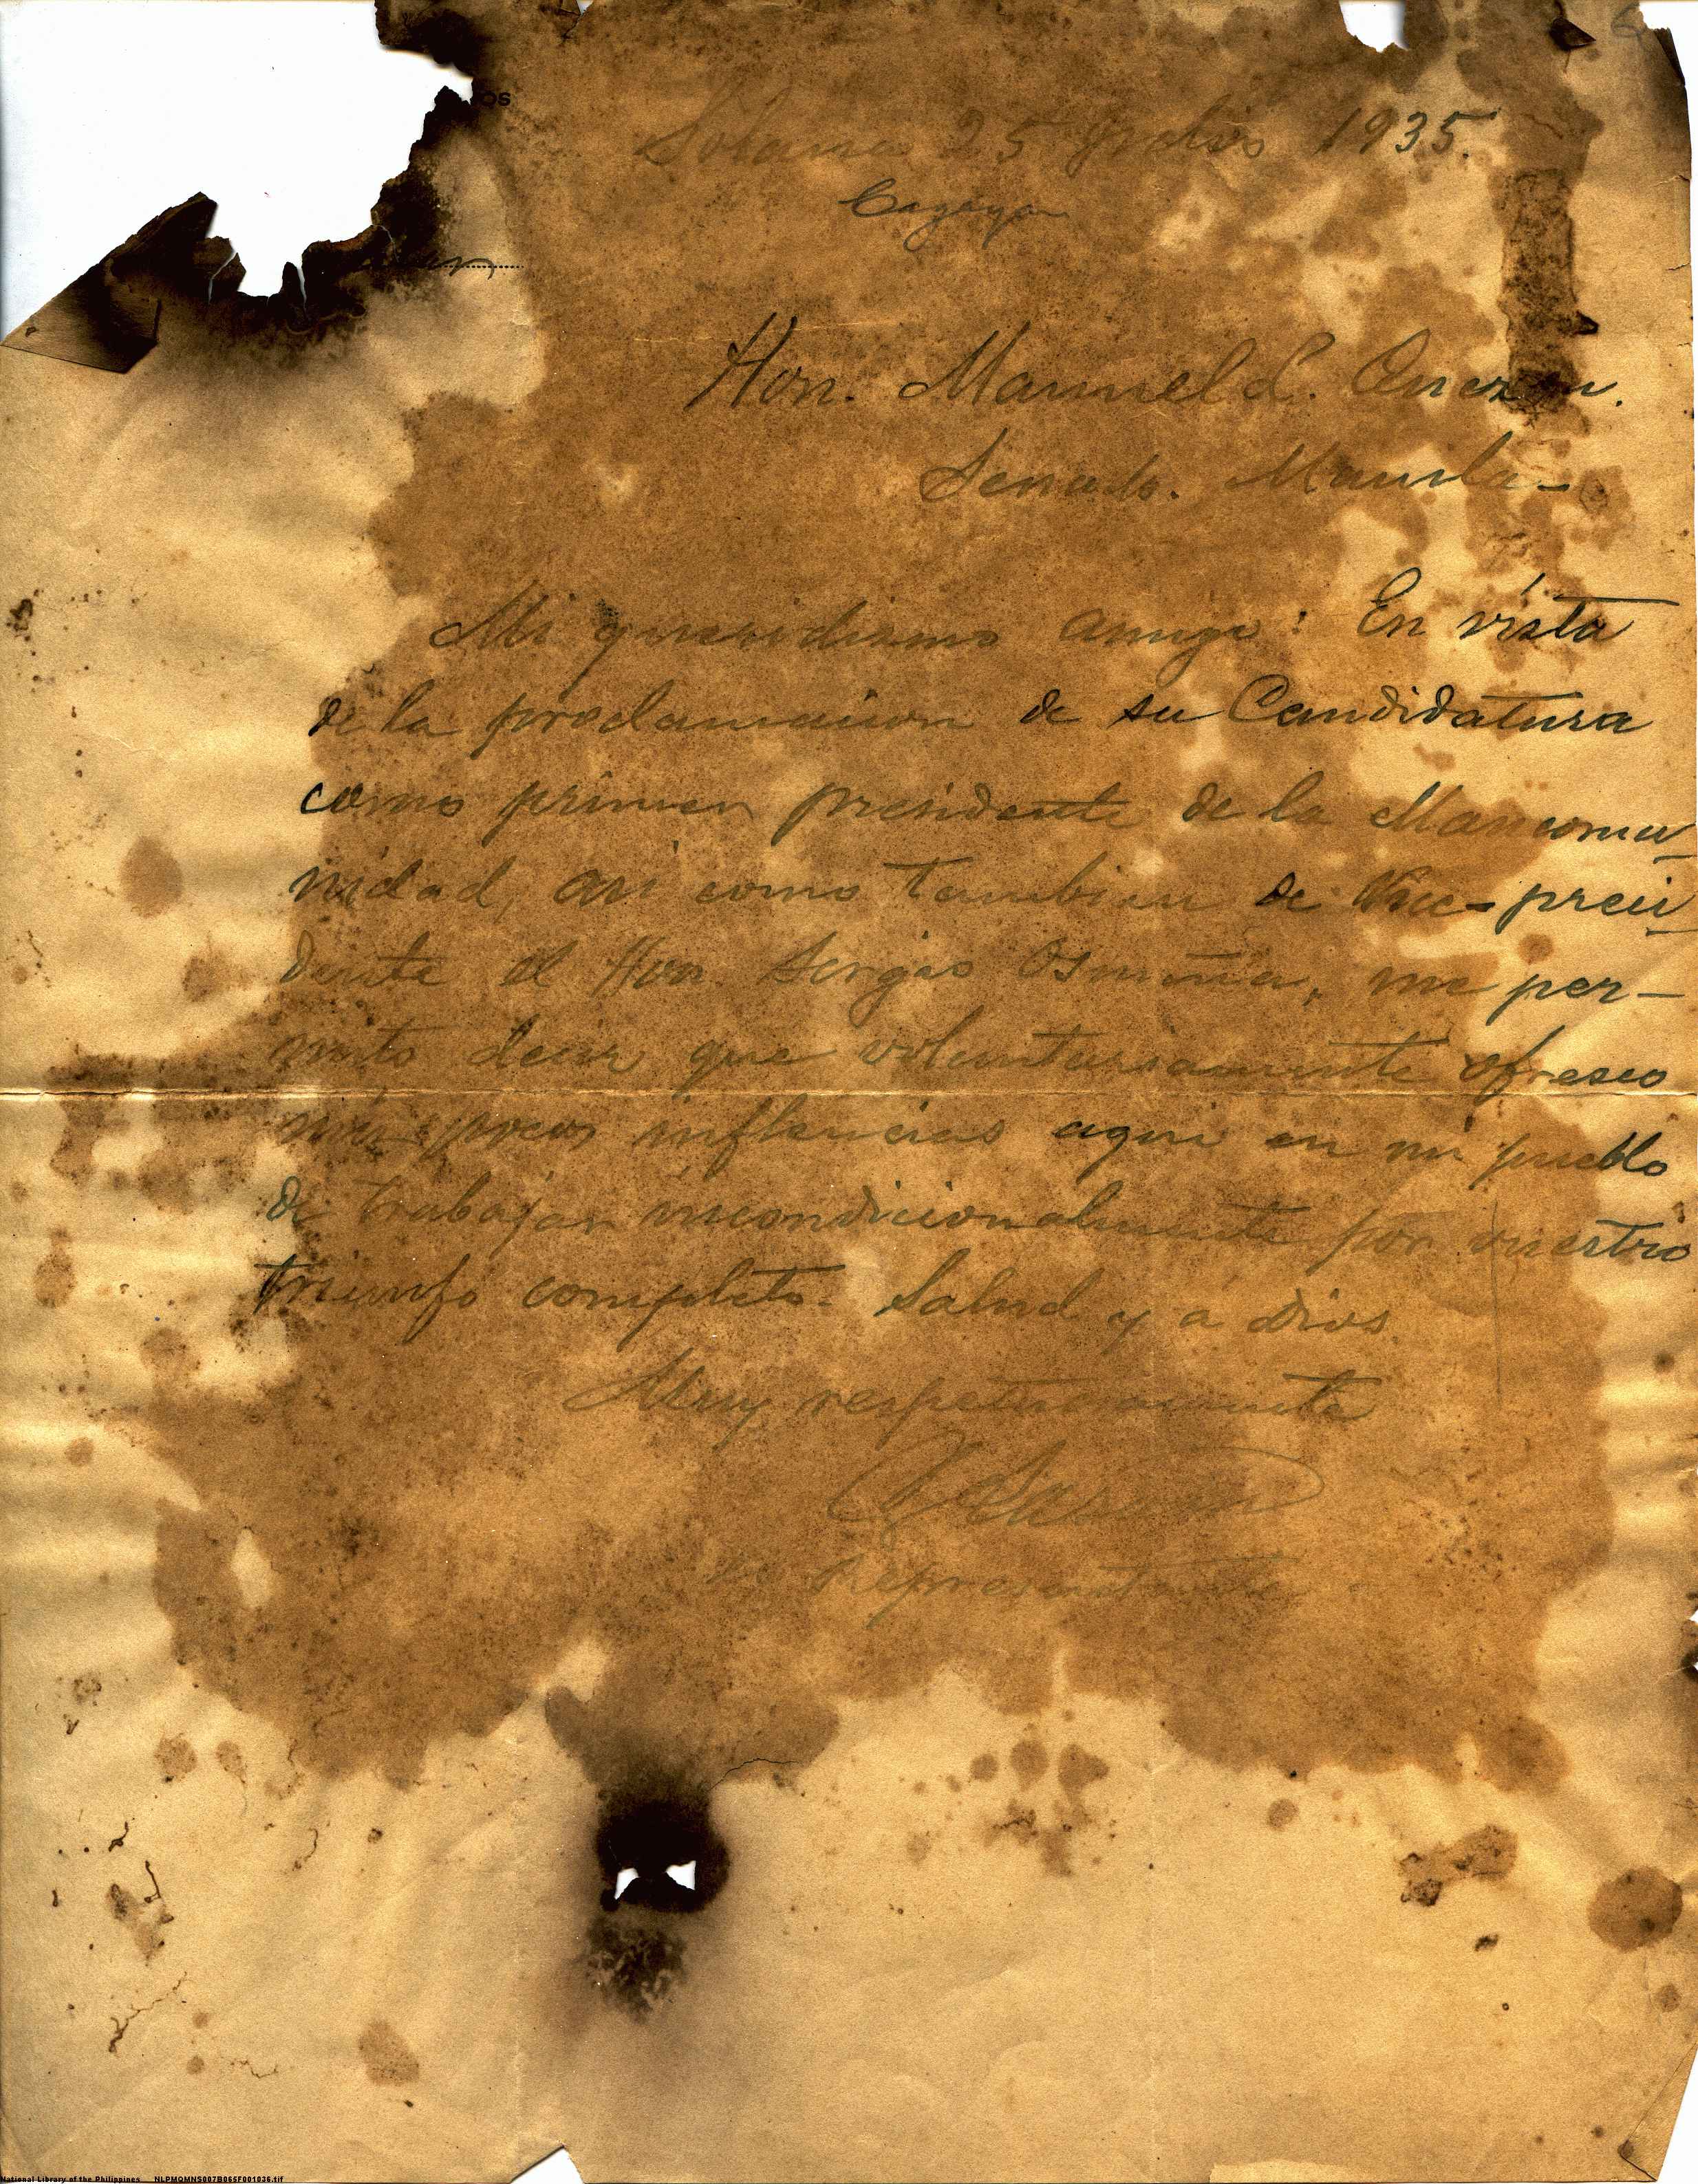 6
os
Solana 25 Julio 1935.
Cagayan
Hon. Manuel L. Quezon.
Senado. Manila-
Mi queridismo amigo: En vista
de la proclamacion de su Candidatura
como primer presidente de la Mancomu
nidad, asi como tambien de Vice-presi
dente el Hon. Sergio Osmeña, me per-
mito decir que voluntariamente ofresco
mis pocas influencias aqui en mi pueblo
de trabajar incondicionalmente por vuestro
triunfo completo. Salud y á dios.
Muy respetuosamente
Representante
National Library of the Philippines NLPMQMNS007B065F001036.tif